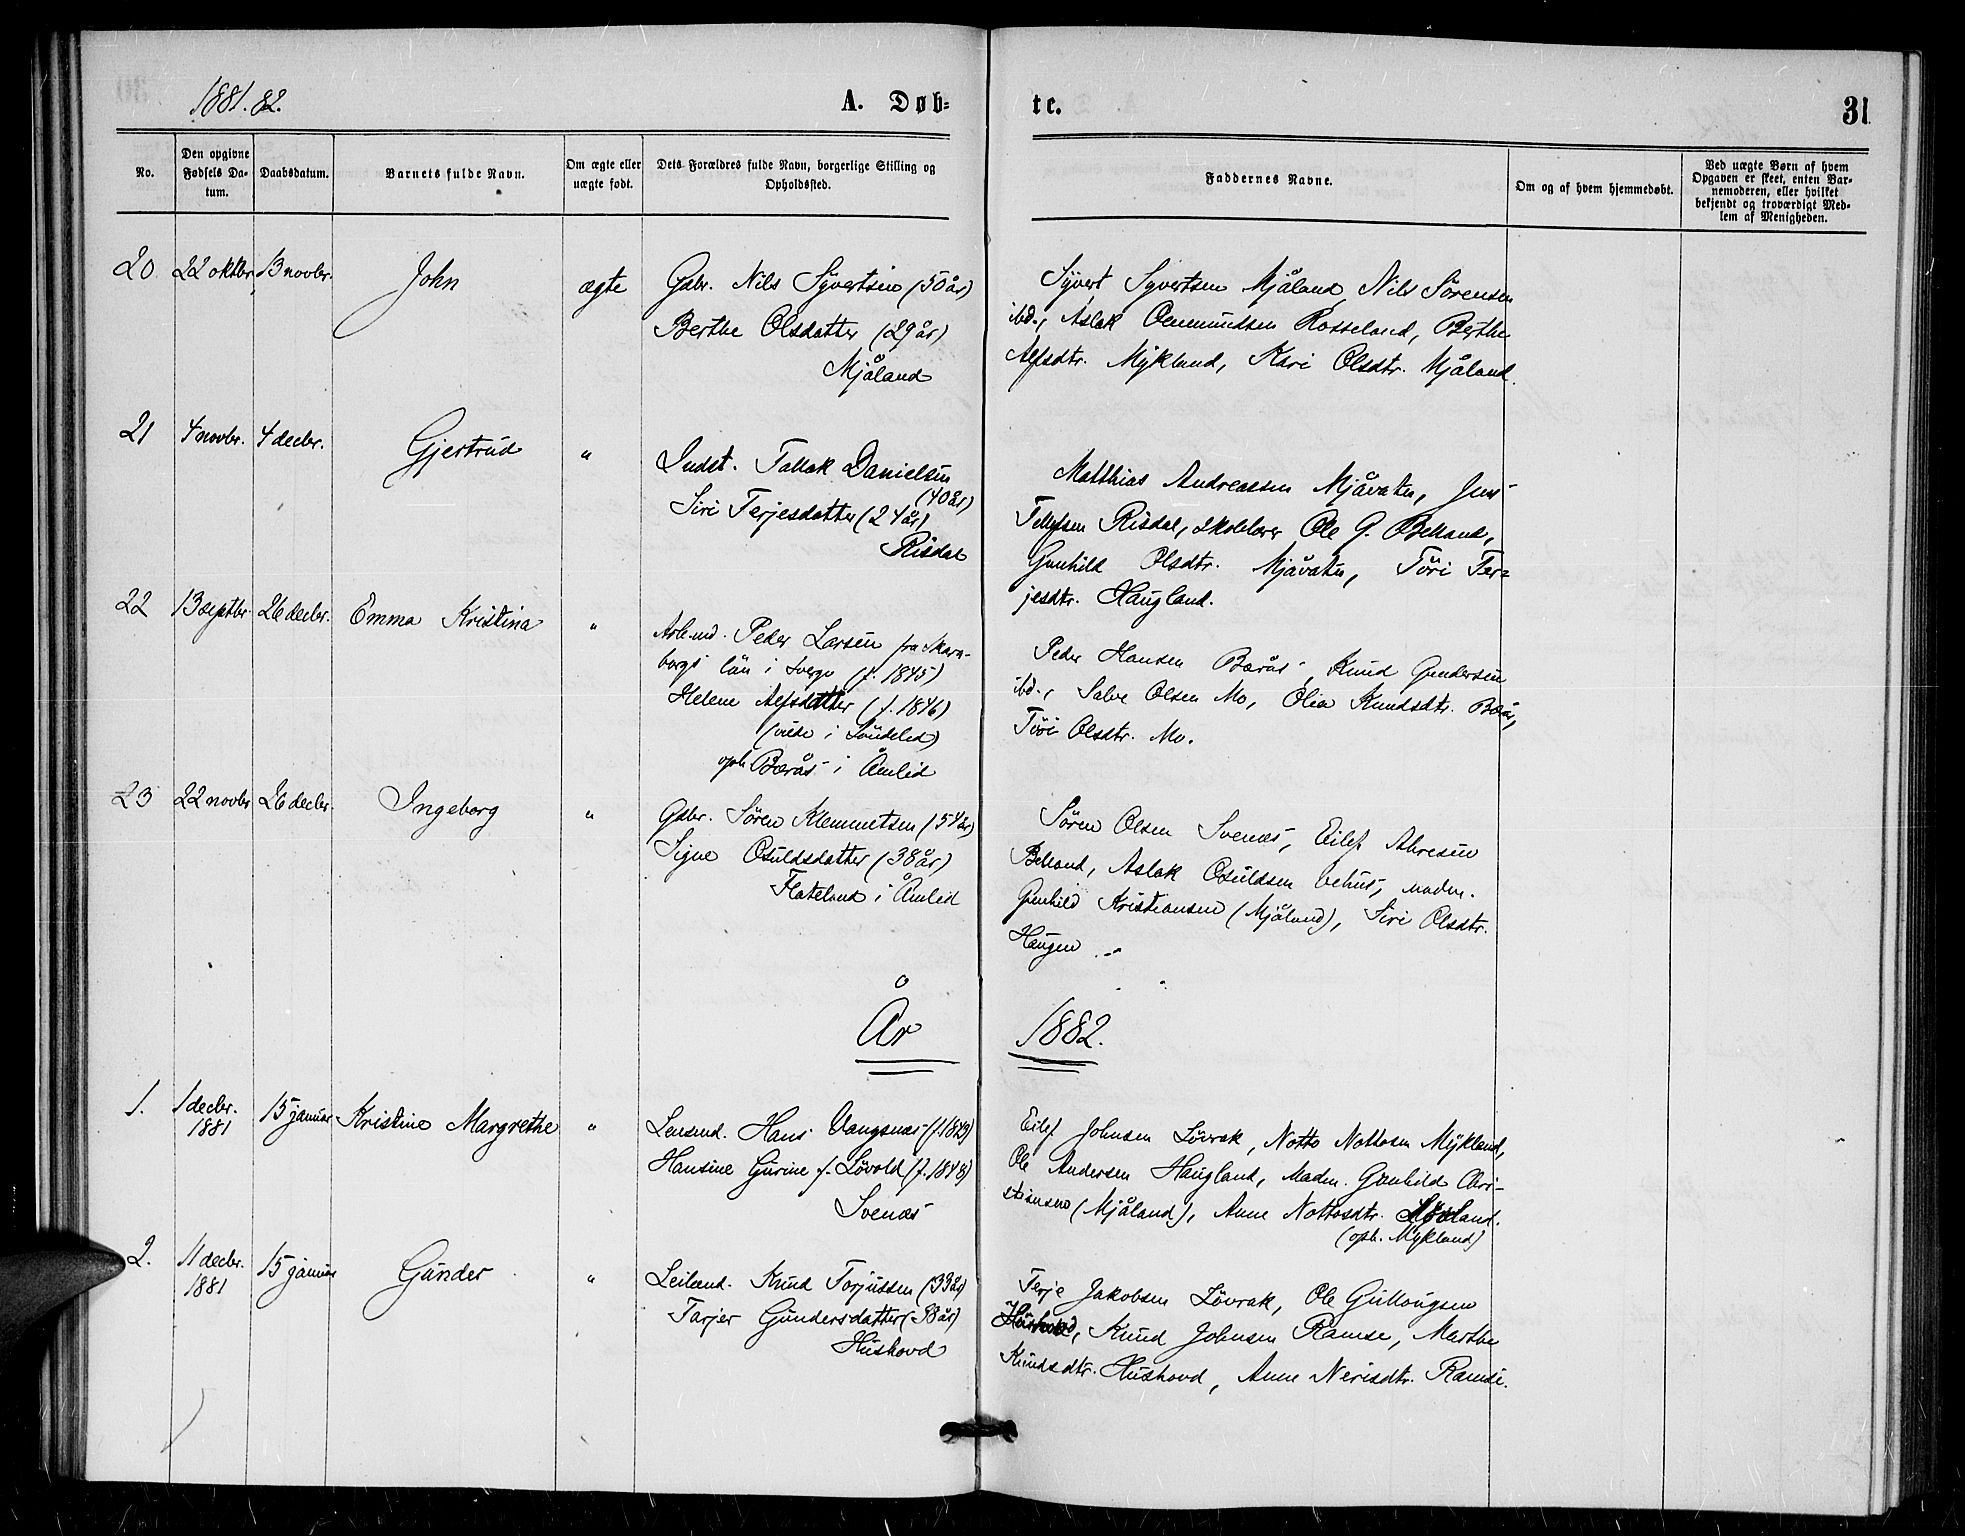 1881. 82.
A. Døb=
te.
31
No.
Den opgivne
Fødsels Da-
tum.
Daabsdatum.
Barnets fulde Navn.
Om ægte eller
uægte født.
Dets Forældres fulde Navn, borgerlige Stilling og
Opholdssted.
Faddernes Navne.
Om og af hvem hjemmedøbt.
Ved uægte Børn af hvem
Opgaven er skeet, enten Bar-
nemoderen, eller hvilket
bekjendt og troværdigt Med-
lem af Menigheden.
20. 22 oktbr. 13 novbr. John ægte
Gdbr. Nils Syvertsen (50 år)
Berthe Olsdatter (29 år)
Mjåland
Syvert Syvertsen Mjåland, Nils Sørensen
ibd., Aslak Omundsen Rosseland, Berthe
Alfsdtr. Mykland, Kari Olsdtr. Mjåland.
21 4 novbr. 4 decbr. Gjertrud "
Indst. Tallak Danielsen
(40 år)
Siri Terjesdatter (24 år)
Risdal
Matthias Andreassen Mjåvatn, Jens
Tellefsen Risdal, skolelærer Ole G. Belland,
Gunhild Olsdtr. Mjåvatn, Töri Ter=
jesdtr. Haugland.
22 13 septbr. 26 decbr. Emma Kristina "
Arb.md. Peder Larsen fra Skara-
borgs län i Sverge (f. 1845)
Helene Alfsdatter (f. 1846)
(viede i Söndeled)
oph. Bærås i Åmlid
Peder Hansen Bærås, Knud Gundersen
ibd., Salve Olsen Mo, Olea Knudsdtr. Bærås,
Töri Olsdtr. Mo.
23 22 novbr. 26 decbr. Ingeborg "
Gdbr. Søren Klemmetsen (54 år)
Signe Osuldsdatter (38 år)
Flateland i Åmlid
Søren Olsen Svenæs, Eilef
Belland, Aslak Osuldsen Vehus, madm.
Gunhild Kristiansen (Mjåland), Siri Olsdtr.
Haugen
År 1882.
1. 1 decbr. 1881 15 januar Kristine Margrethe "
Lensmd. Hans Vangsnæs (f. 1843)
Hansine Gurine f. Løvold (f. 1848)
Svenæs
Eilef Johnsen Lövrak, Notto Nottosen Mykland,
Ole Andersen Haugland, Madm. Gunhild Chri-
stiansen (Mjåland), Anne Nottosdtr.
(oph. Mykland)
2. 11 decbr. 1881 15 januar Gunder "
Leilend. Knud Torjussen (33 år)
Tarjer Gundersdatter (38 år)
Hushovd
Terje Jakobsen Lövrak, Ole Gullougsen
Hushovd, Knud Johnsen Ramse, Marthe
Knudsdtr. Hushovd, Anne Nerisdtr. Ramse.